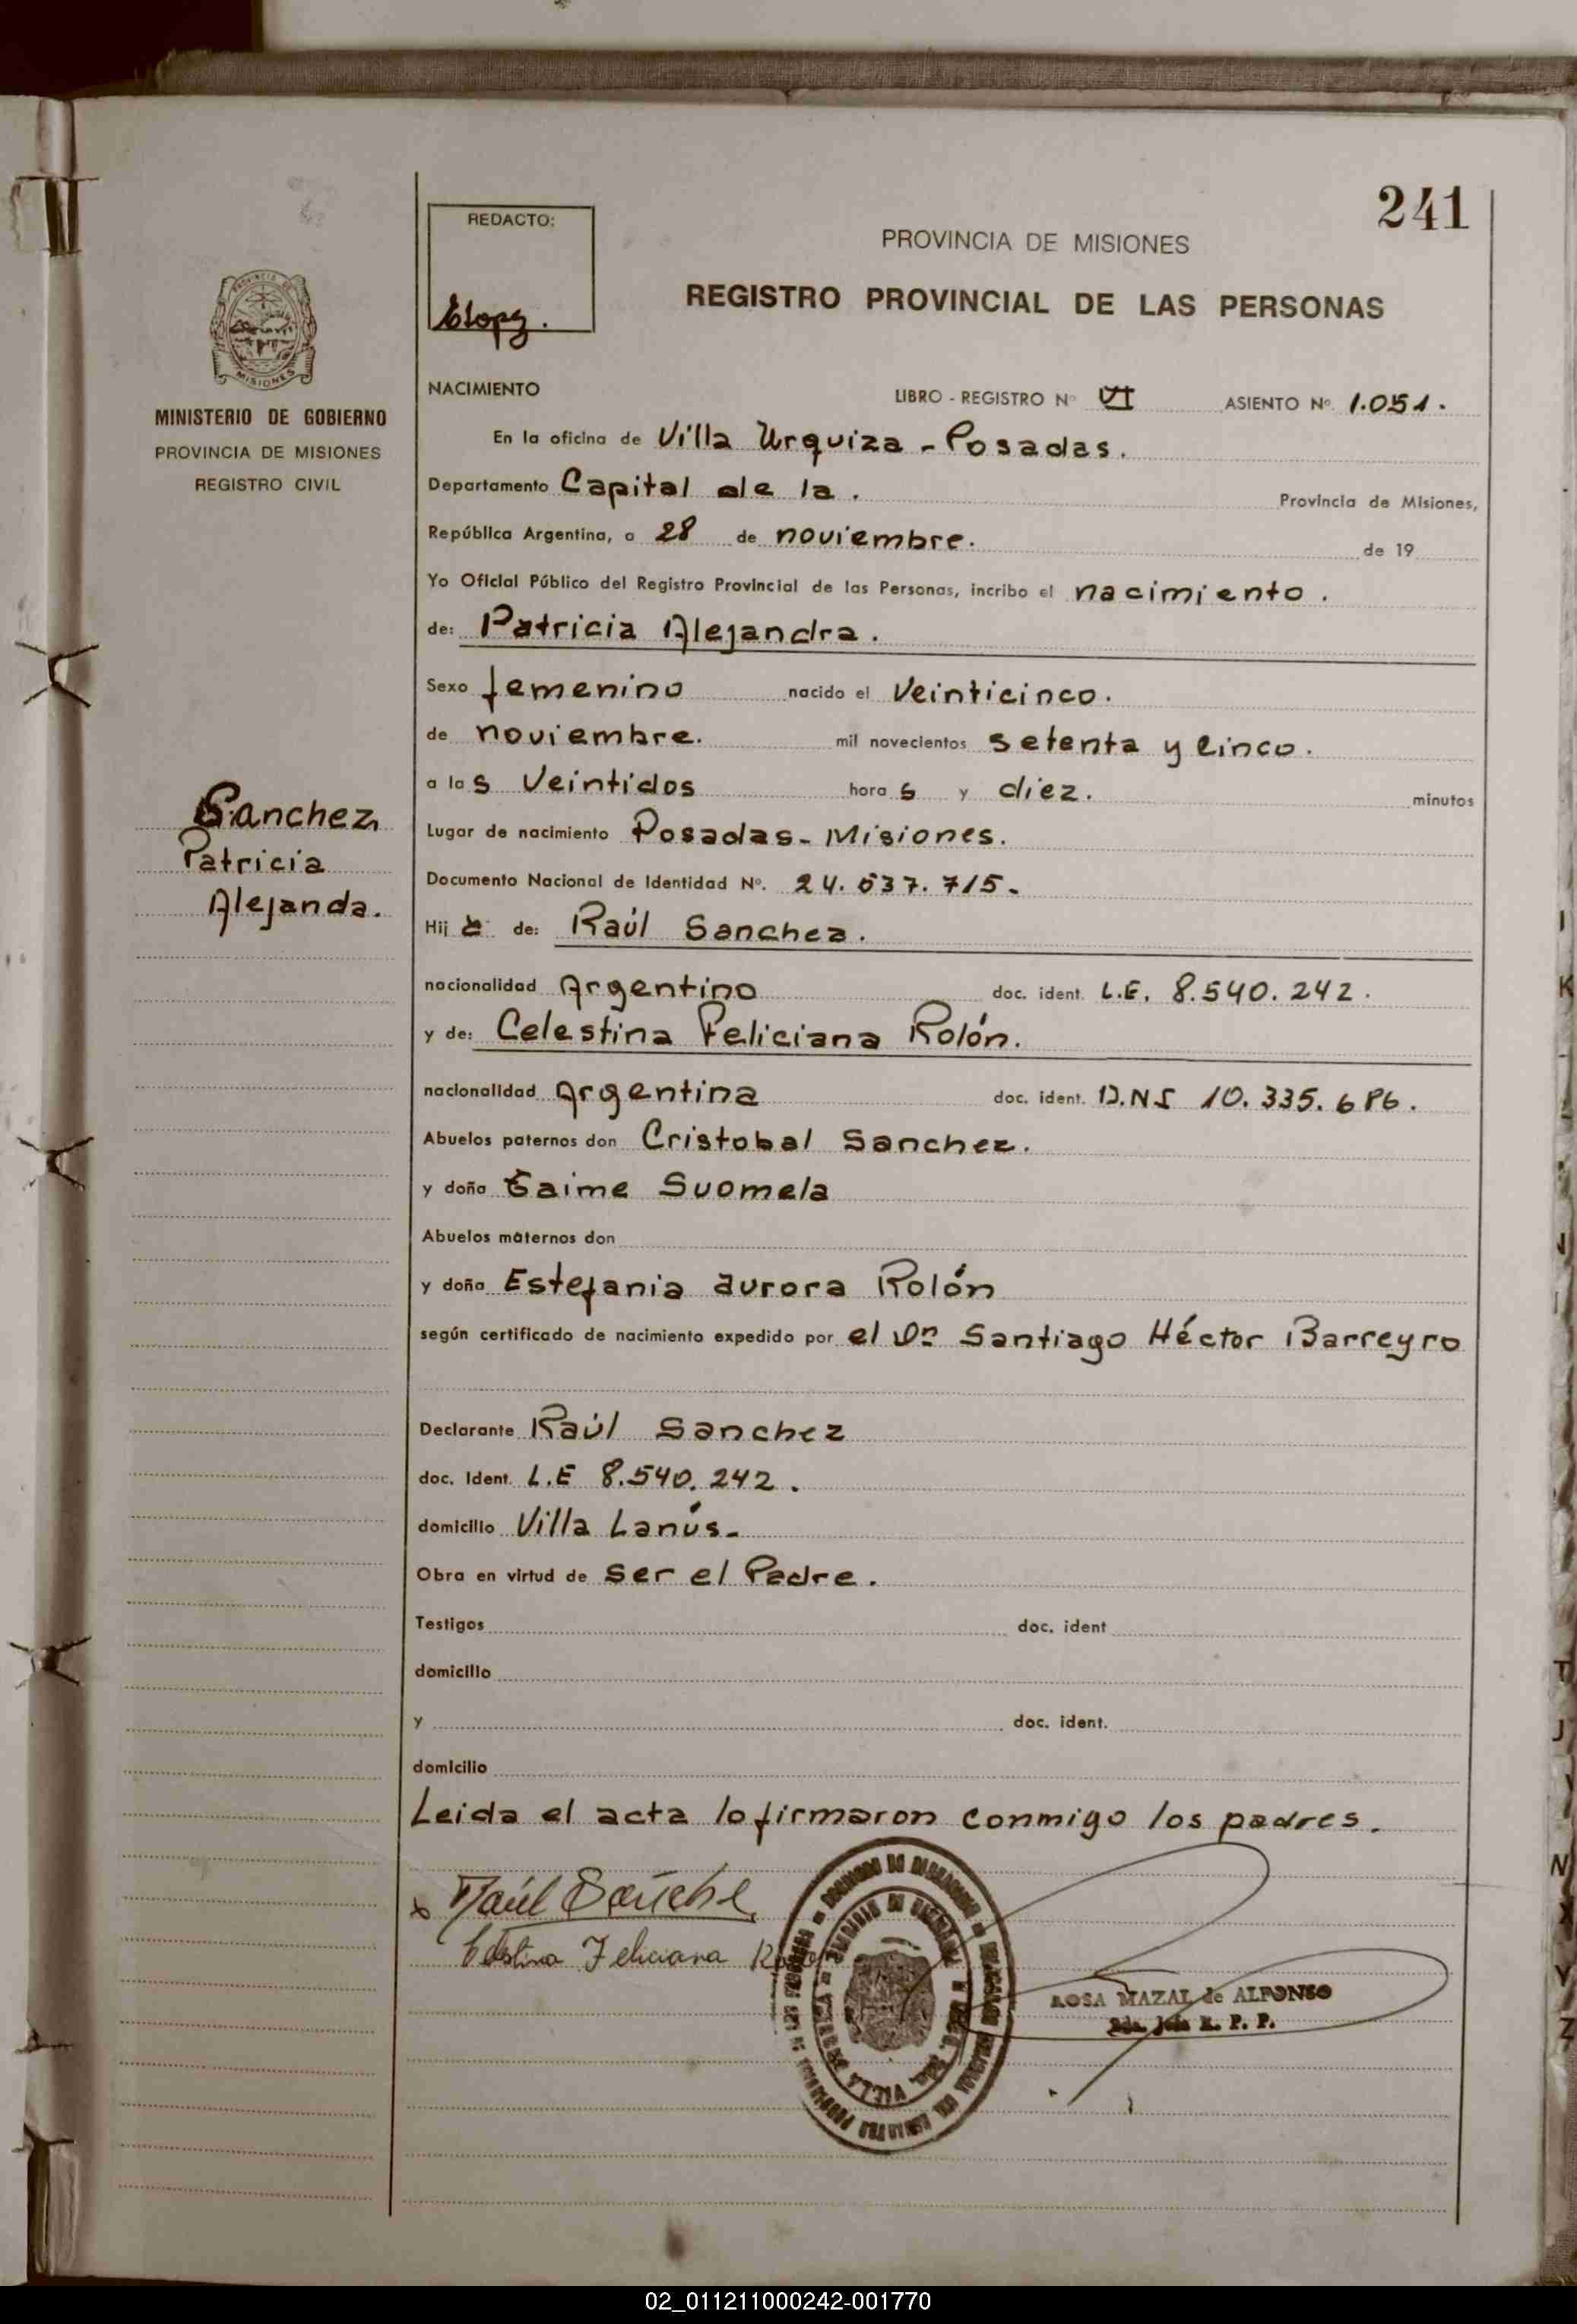 241
REDACTO:
PROVINCIA DE MISIONES
REGISTRO PROVINCIAL DE LAS PERSONAS
MISIONES
MINISTERIO DE GOBIERNO
PROVINCIA DE MISIONES
REGISTRO CIVIL
NACIMIENTO LIBRO - REGISTRO Nº VI ASIENTO Nº 1.051.
En la oficina de Villa Urquiza - Posadas.
Departamento Capital de la. Provincia de Misiones,
República Argentina, a 28 de noviembre. de 19
Yo Oficial Público del Registro Provincial de las Personas, incribo el nacimiento.
de: Patricia Alejandra.
Sexo femenino nacido el Veinticinco.
de noviembre. mil novecientos setenta y cinco.
a las Veintidos horas y diez. minutos
Sanchez,
Patricia
Alejanda.
Lugar de nacimiento Posadas - Misiones.
Documento Nacional de Identidad Nº. 24.637.715-
Hija de: Raúl Sanchez.
nacionalidad Argentino doc. ident. L.E. 8.540.242.
y de: Celestina Feliciana Rolón.
nacionalidad Argentina doc. ident. D.NI 10.335.686.
Abuelos paternos don Cristobal Sanchez.
y doña Taime Suomela
Abuelos maternos don
y doña Estefania aurora Rolón
según certificado de nacimiento expedido por el Dr Santiago Héctor Barreyro
Declarante Raúl Sanchez
doc. Ident. L.E 8.540.242.
domicilio Villa Lanús-
Obra en virtud de ser el Padre.
Testigos doc. ident
domicilio
y doc. ident.
domicilio
Leida el acta lo firmaron conmigo los padres.
x Raúl Sanchez
Celestina Feliciana Rolon
VILLA URQUIZA
ROSA MAZAL de ALFONSO
R. P. P.
I
K
T
J
N
X
Y
Z
02_011211000242-001770